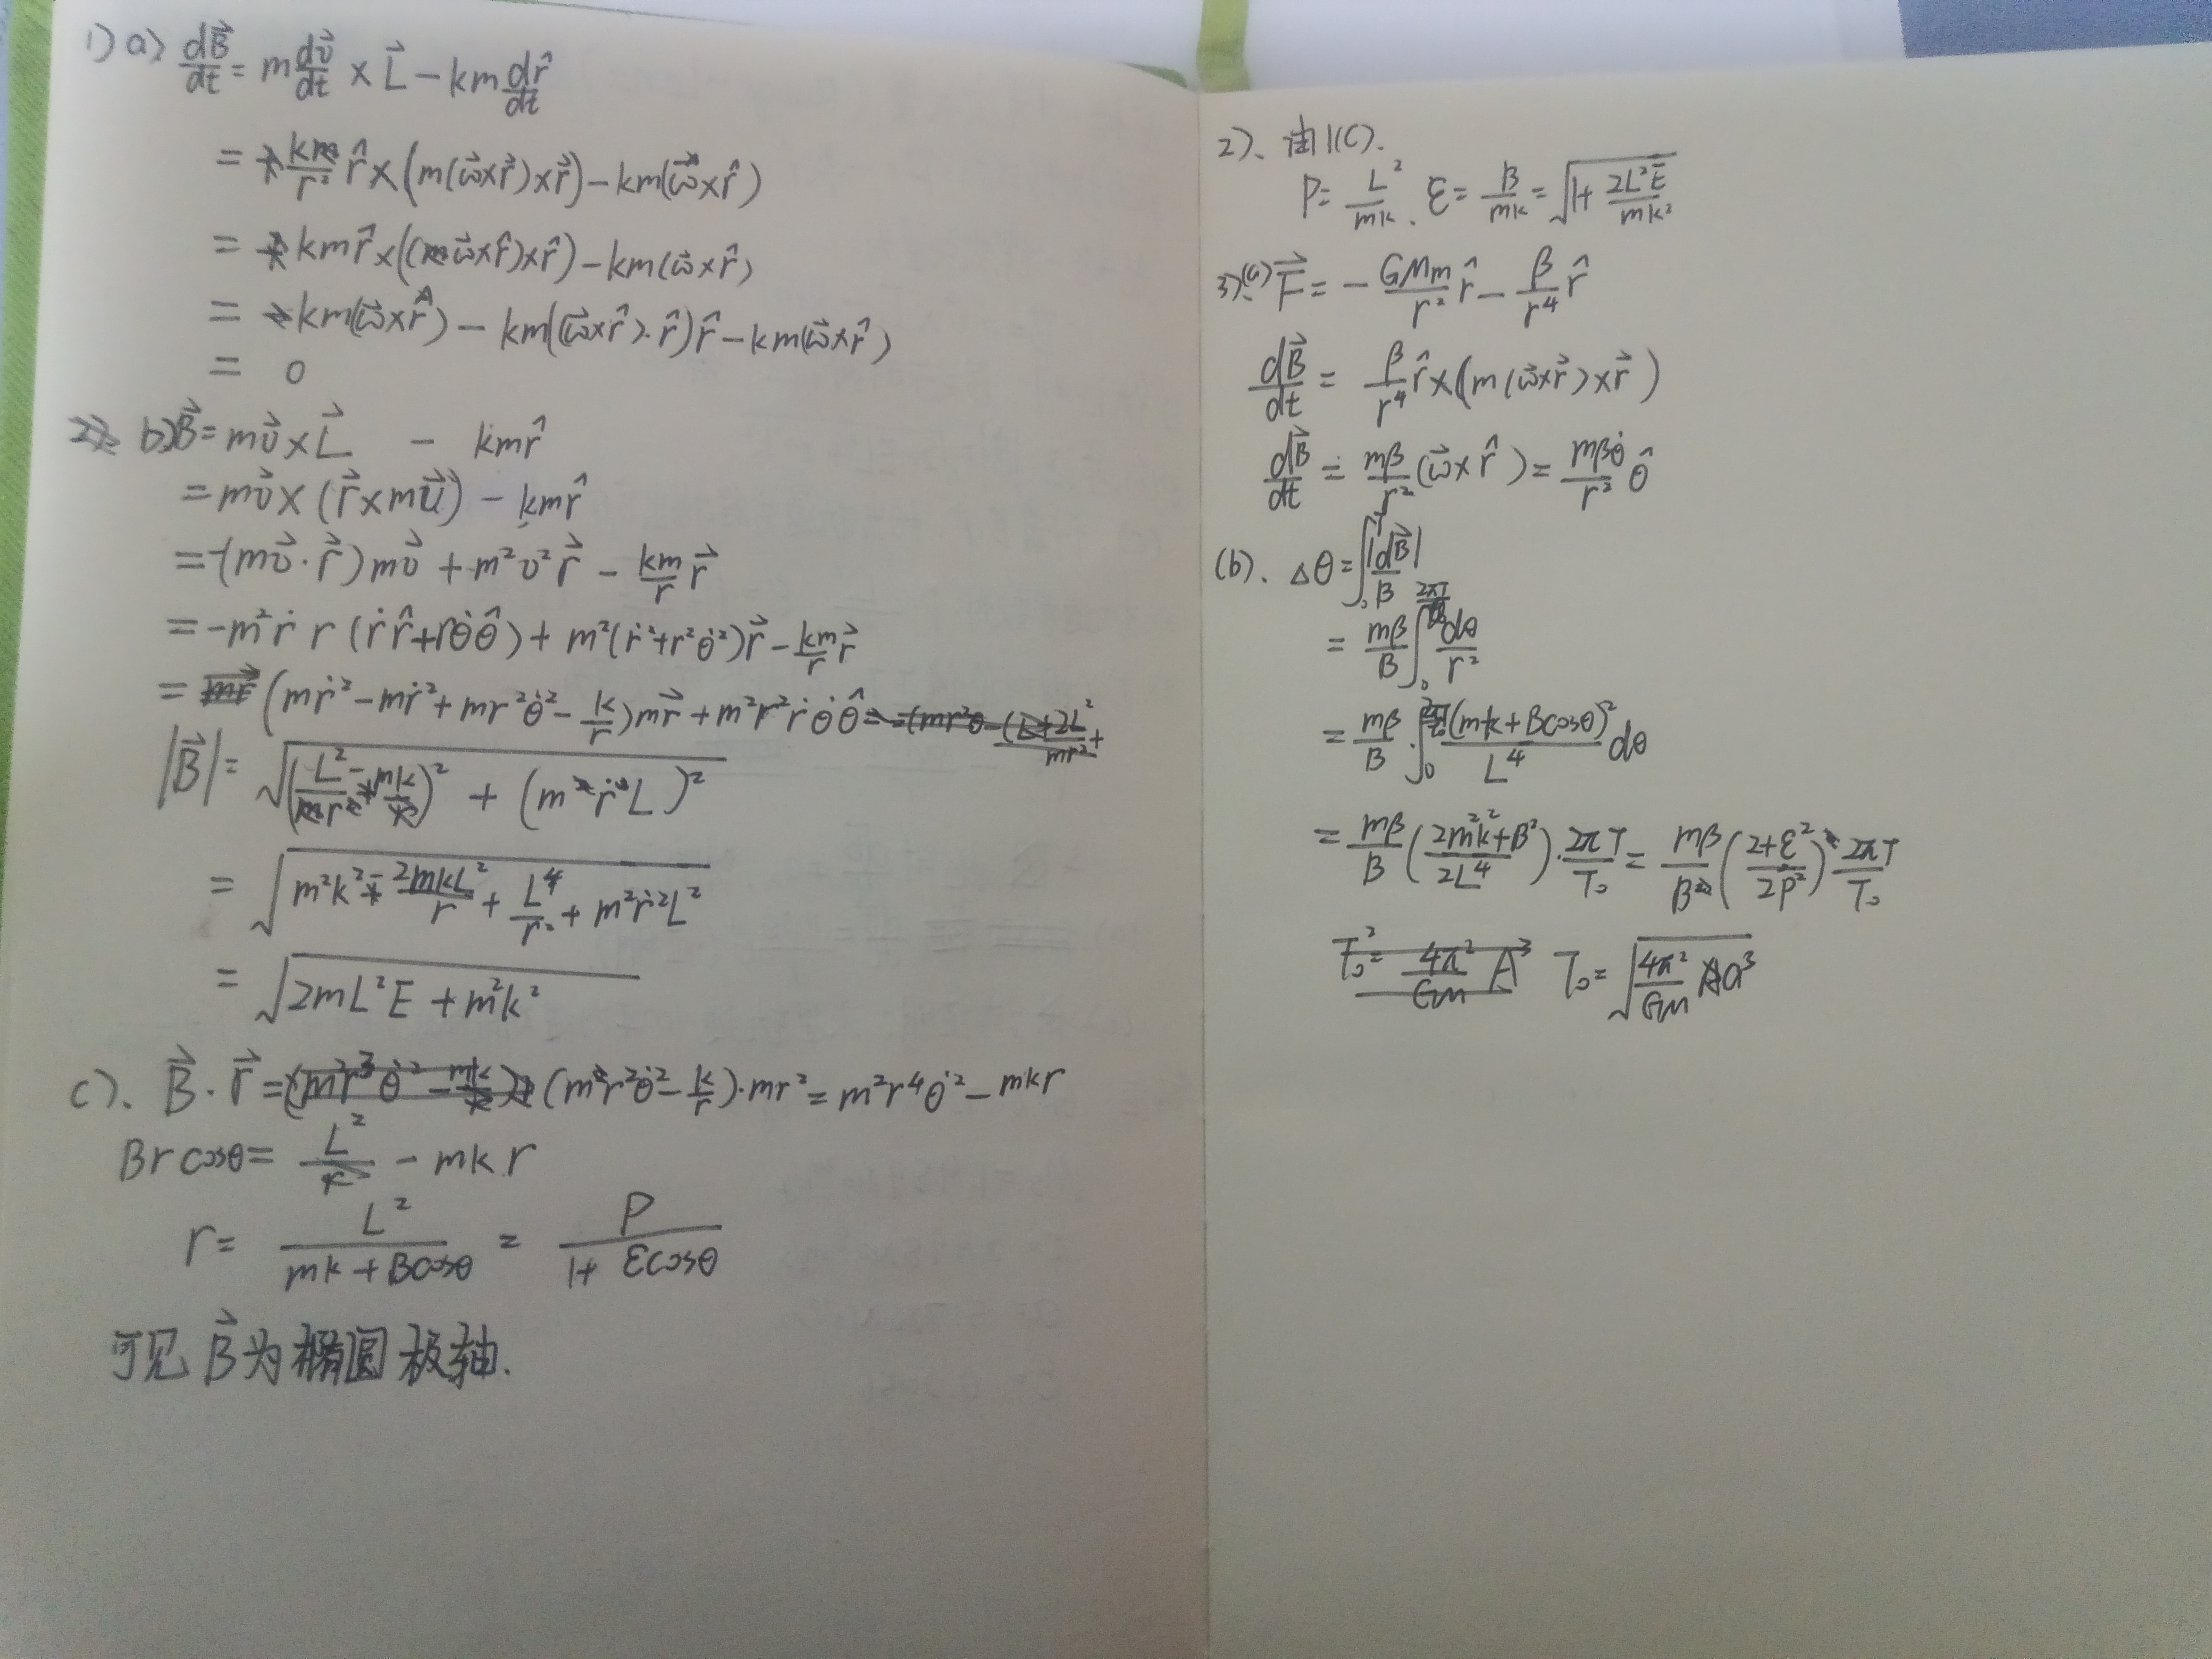 1) a) dB⃗/dt = m dv⃗/dt × L⃗ − km dr̂/dt
= km/r² r̂ × (m(ω⃗×r⃗)×r⃗) − km(ω⃗×r̂)
= km r̂ × ((ω⃗×r̂)×r̂) − km(ω⃗×r̂)
= km(ω⃗×r̂) − km((ω⃗×r̂)·r̂)r̂ − km(ω⃗×r̂)
= 0
b) B⃗ = mv⃗ × L⃗ − kmr̂
= mv⃗ × (r⃗ × mv⃗) − kmr̂
= −(mv⃗·r⃗)mv⃗ + m²v²r⃗ − km/r r⃗
= −m²ṙ r (ṙr̂ + rθ̇θ̂) + m²(ṙ² + r²θ̇²)r⃗ − km/r r⃗
= (mṙ² − mṙ² + mr²θ̇² − k/r)mr⃗ + m²r²ṙθ̇θ̂
|B⃗| = √((L²/r − mk)² + (mṙL)²)
= √(m²k² − 2mkL²/r + L⁴/r² + m²ṙ²L²)
= √(2mL²E + m²k²)
c). B⃗·r⃗ = (mr²θ̇² − k/r)·mr² = m²r⁴θ̇² − mkr
Br cosθ = L² − mkr
r = L²/(mk + Bcosθ) = P/(1 + εcosθ)
可见 B⃗为椭圆极轴.
2)、由1(C).
P = L²/mk . ε = B/mk = √(1 + 2L²E/mk²)
3)、(a) F⃗ = − GMm/r² r̂ − β/r⁴ r̂
dB⃗/dt = β/r⁴ r̂ × (m(ω⃗×r⃗)×r⃗)
dB⃗/dt = mβ/r² (ω⃗×r̂) = mβθ̇/r² θ̂
(b). Δθ = ∫₀ᵀ |dB⃗|/B
= mβ/B ∫₀ dθ/r²
= mβ/B · ∫₀ (mk + Bcosθ)²/L⁴ dθ
= mβ/B (2m²k² + B²/2L⁴) · 2πT/T₀ = mβ/B (2+ε²/2P²) 2πT/T₀
T₀ = √(4π²/GM a³)